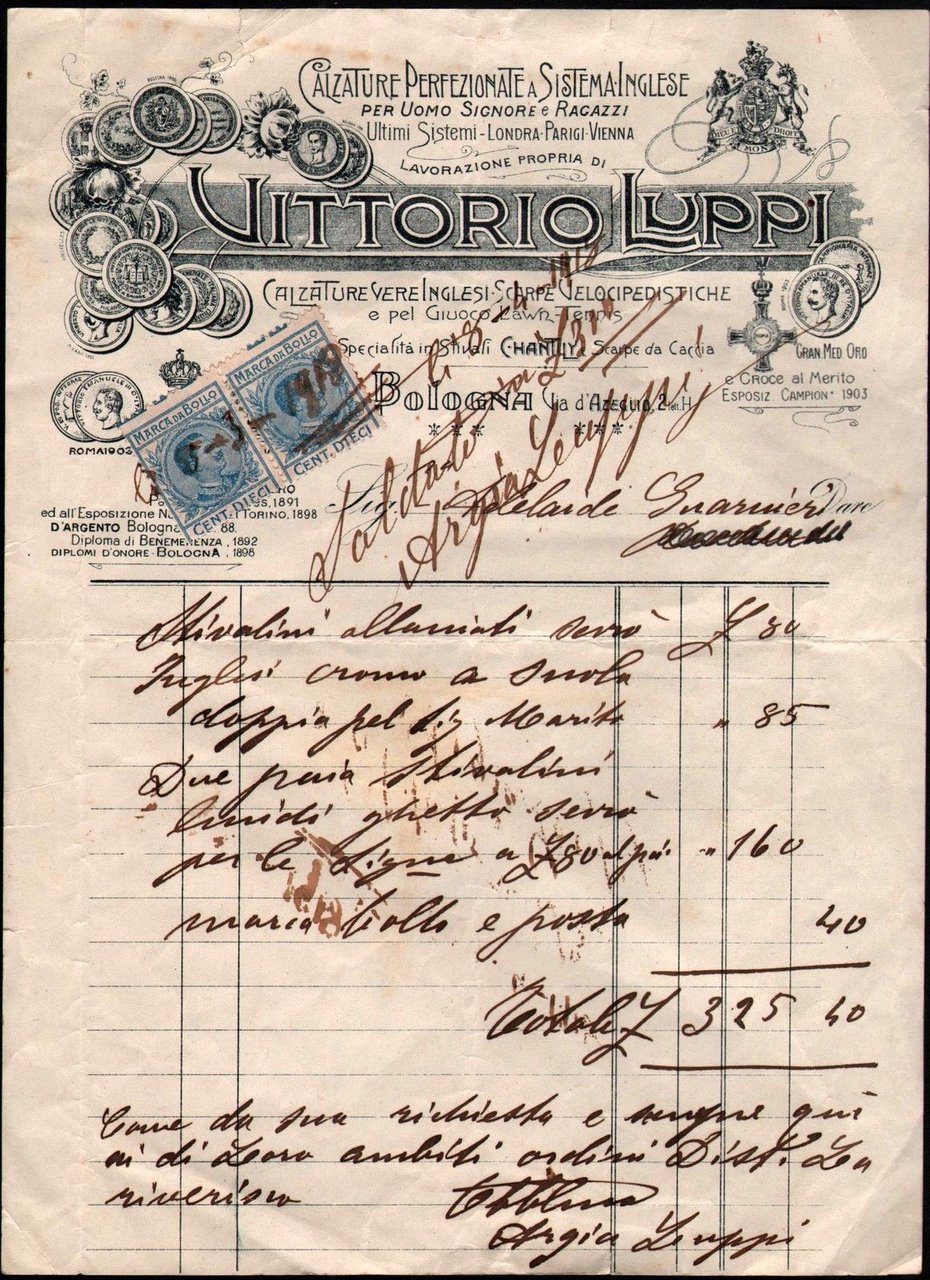 CALZATURE PERFEZIONATE A SISTEMA INGLESE
PER UOMO SIGNORE E RAGAZZI
ULTIMI SISTEMI - LONDRA - PARIGI - VIENNA
LAVORAZIONE PROPRIA DI
VITTORIO LUPPI
DIEU ET MON DROIT
CALZATURE VERE INGLESI - SCARPE VELOCIPEDISTICHE
e pel Giuoco Lawn-Tennis
Specialità in Stivali CHANTILLY e Scarpe da Caccia
BOLOGNA Via d'Azeglio, 2
GRAN. MED. ORO
e Croce al Merito
ESPOSIZ. CAMPION. 1903
ROMA 1903
MARCA DA BOLLO
CENT. DIECI
MARCA DA BOLLO
CENT. DIECI
5-3-1919
1891
ed all'Esposizione TORINO, 1898
D'ARGENTO Bologna 88.
Diploma di BENEMERENZA, 1892
DIPLOMI D'ONORE - BOLOGNA, 1898
Saldato
Argia Luppi
Sig. Adelaide Guarnieri Dare
Stivalini allacciati £ 80
Inglesi cromo a suola
doppia pel Sig Marito " 85
Due paia stivalini
lucidi ghetto
per le Signe a £ 80 al paio " 160
marca bollo e posta 40
Totale £ 325 40
Come da sua richiesta e sempre
di Loro ambiti ordini Dist. La
riverisco
Argia Luppi